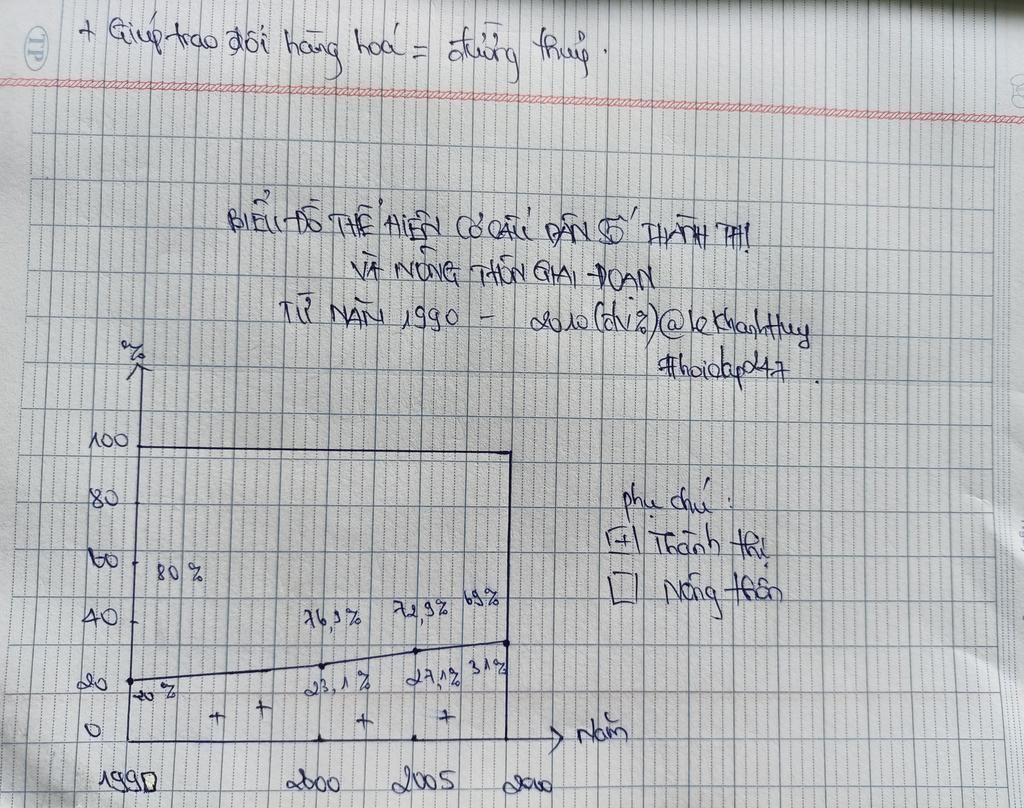 TP
+ Giúp trao đổi hàng hoá = đường thuỷ.
BIỂU ĐỒ THỂ HIỆN CƠ CẤU DÂN SỐ THÀNH THỊ
VÀ NÔNG THÔN GIAI ĐOẠN
TỪ NĂM 1990 - 2010 (đv: %) @lekhanhHuy
#hoidap247.
%
100
80
60
80%
phụ chú:
+ Thành thị
Nông thôn
40
76,9% 72,9% 69%
20
20% 23,1% 27,1% 31%
+ + + +
0
Năm
1990 2000 2005 2010